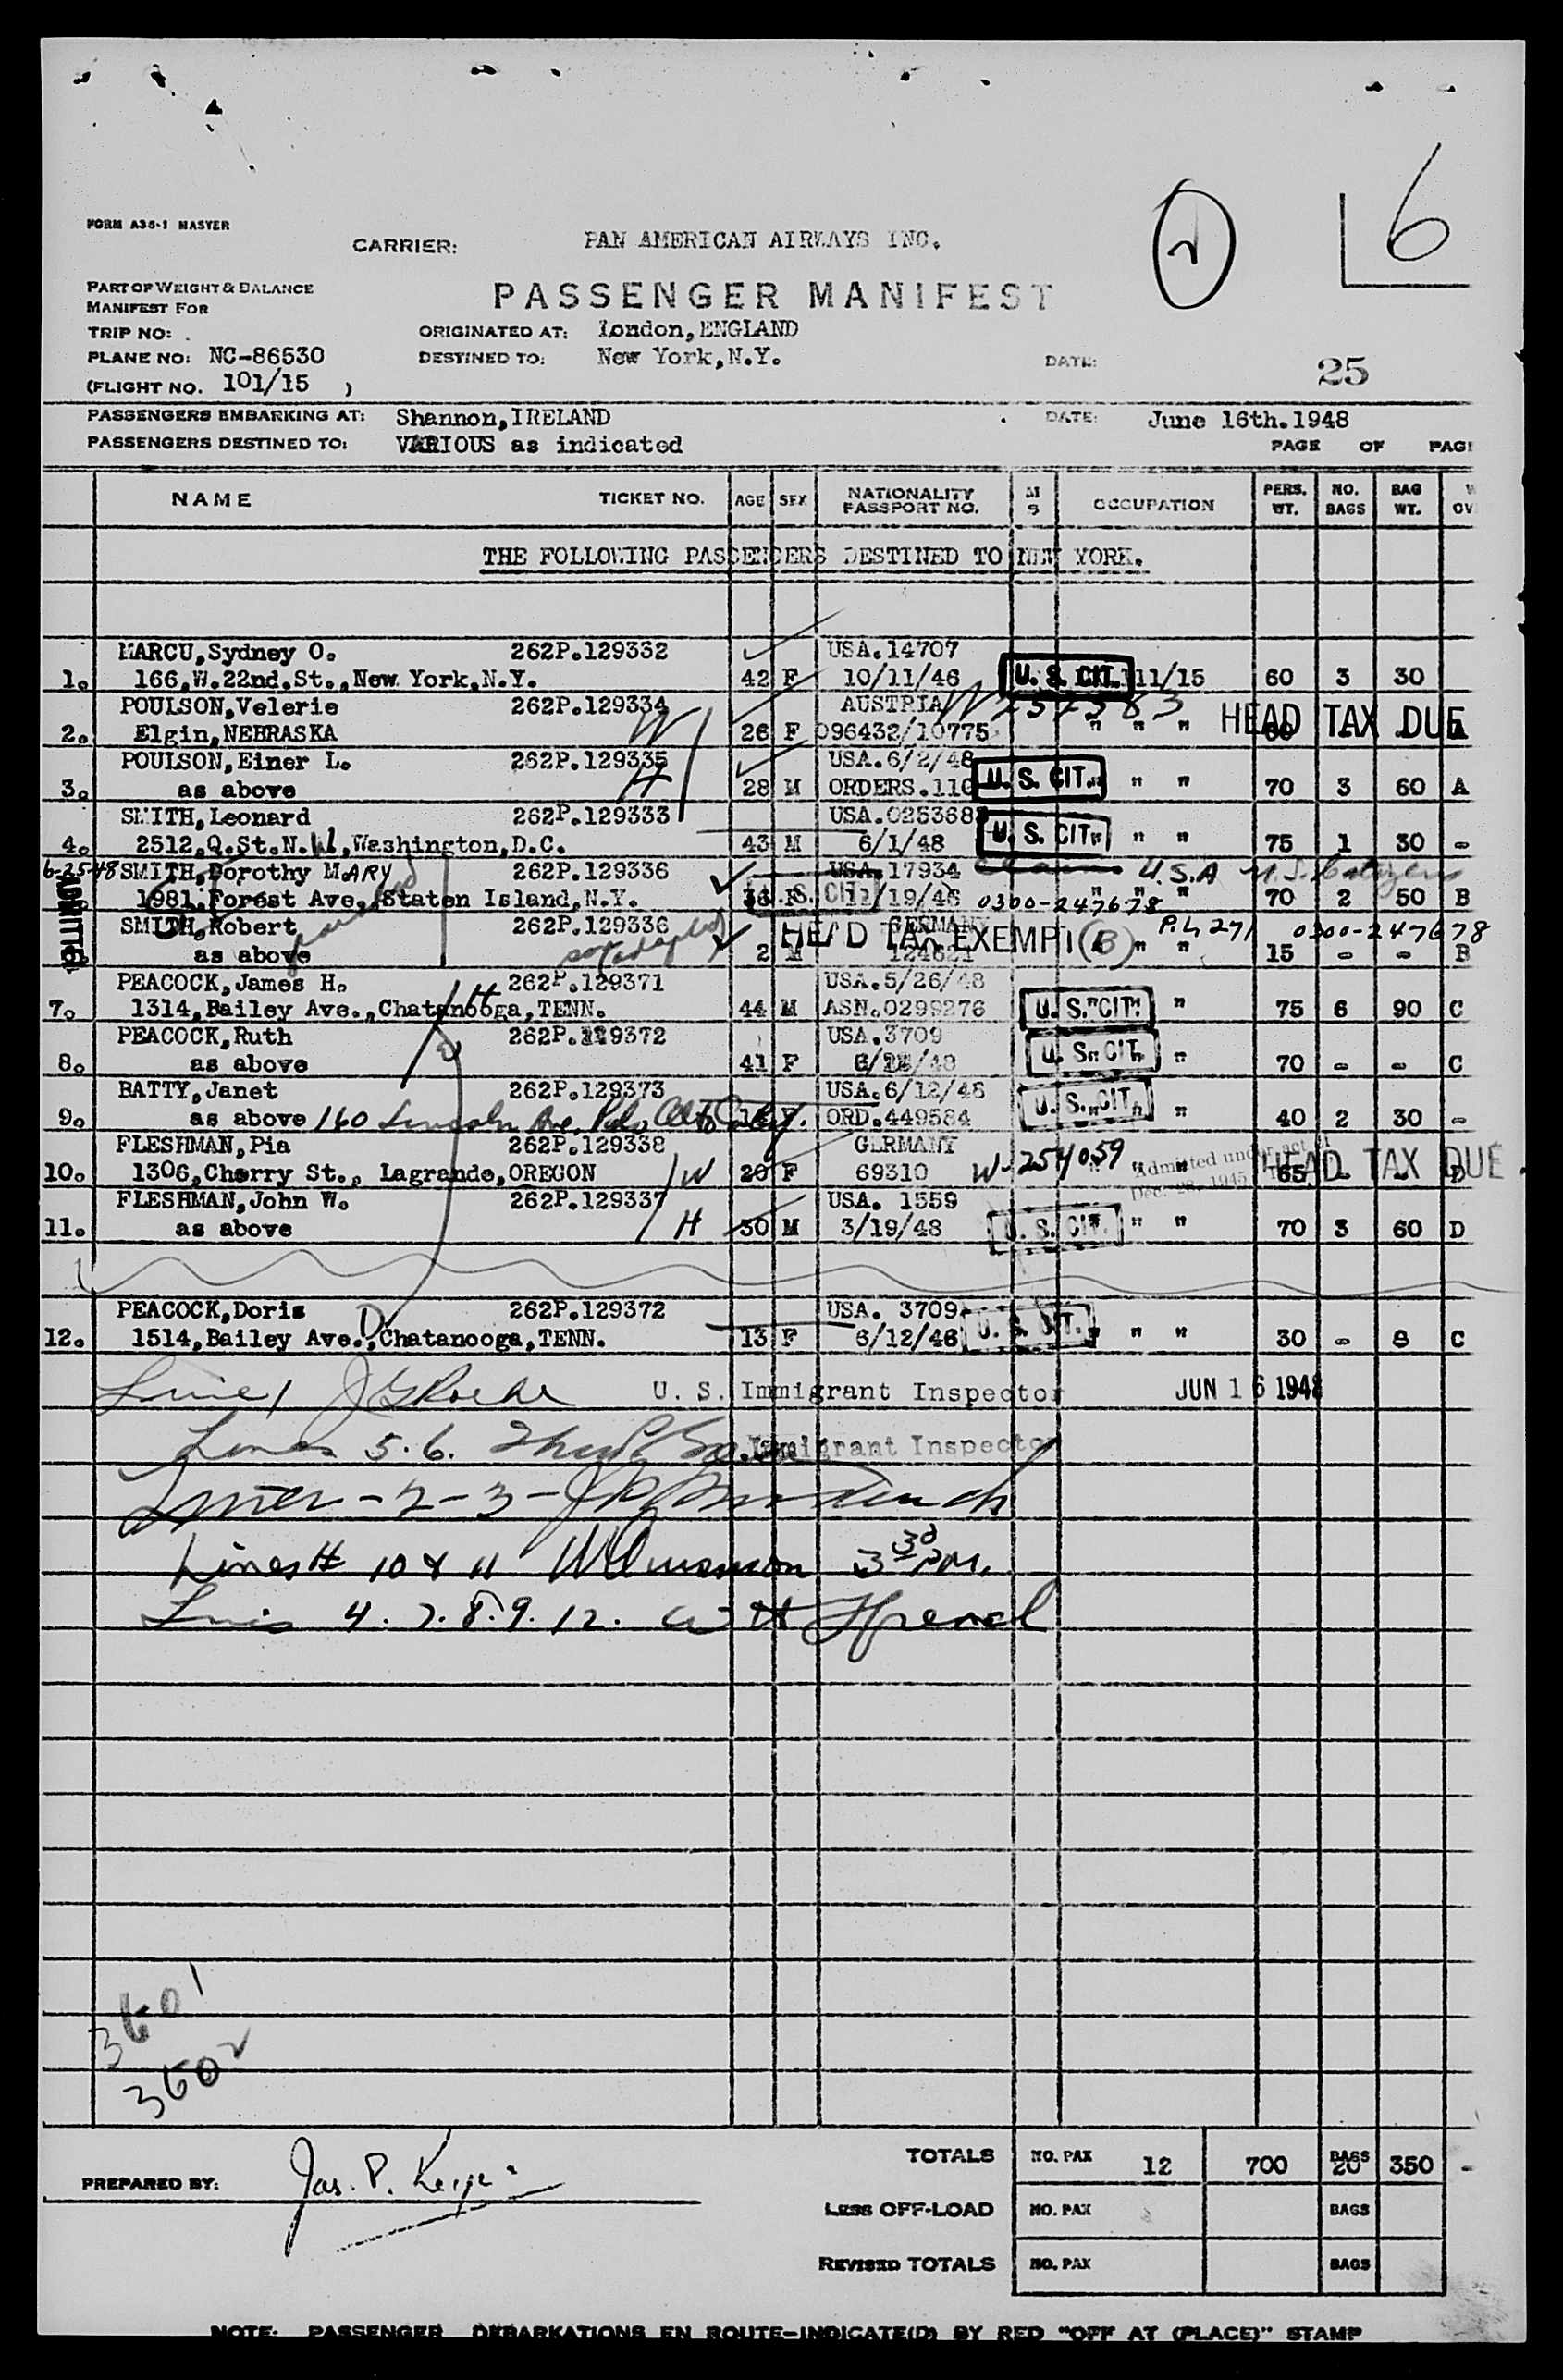 6
2
FORM A36-1 MASTER
CARRIER: PAN AMERICAN AIRWAYS INC.
PART OF WEIGHT & BALANCE
MANIFEST FOR
PASSENGER MANIFEST
TRIP NO: ORIGINATED AT: London,ENGLAND
PLANE NO: NC-86530 DESTINED TO: New York,N.Y. DATE: 25
(FLIGHT NO. 101/15 )
PASSENGERS EMBARKING AT: Shannon,IRELAND DATE: June 16th.1948
PASSENGERS DESTINED TO: VARIOUS as indicated PAGE OF
NAME TICKET NO. AGE SEX NATIONALITY PASSPORT NO. M S OCCUPATION PERS. WT. NO. BAGS BAG WT.
THE FOLLOWING PASSENGERS DESTINED TO NEW YORK.
MARCU,Sydney O. 262P.129332 USA.14707
1. 166,W.22nd.St.,New York,N.Y. 42 F 10/11/46 U. S. CIT. 111/15 60 3 30
POULSON,Velerie 262P.129334 AUSTRIA
2. Elgin,NEBRASKA W 26 F 096432/10775 " " " HEAD TAX DUE
POULSON,Einer L. 262P.129335 USA.6/2/48
3. as above H 28 M ORDERS.110 U. S. CIT. " " 70 3 60 A
SMITH,Leonard 262P.129333 USA.025368
4. 2512,Q.St.N.W.,Washington,D.C. 43 M 6/1/48 U. S. CIT. " " 75 1 30 -
6-25-48 SMITH,Dorothy MARY 262P.129336 USA.17934 U.S.A
ADMITTED 1981.Forest Ave.,Staten Island,N.Y. F /19/46 0300-247678 " 70 2 50 B
SMITH,Robert 262P.129336 GERMANY P.L 271 0300-247678
as above 2 M 124621 HEAD TAX EXEMPT (B) " " 15 - - B
PEACOCK,James H. 262P.129371 USA.5/26/48
7. 1314,Bailey Ave.,Chatanooga,TENN. H 44 M ASN.0299276 U. S. CIT. " 75 6 90 C
PEACOCK,Ruth 262P.129372 USA.3709
8. as above 41 F U. S. CIT. " 70 - - C
BATTY,Janet 262P.129373 USA.6/12/48
9. as above 160 Lincoln Ave, Palo Alto Calif. F ORD.449584 U. S. CIT. " 40 2 30 -
FLESHMAN,Pia 262P.129338 GERMANY
10. 1306,Cherry St., Lagrande,OREGON W 29 F 69310 W-254059 Admitted under act of Dec. 28, 1945 65 - - D HEAD TAX DUE
FLESHMAN,John W. 262P.129337 USA. 1559
11. as above H 30 M 3/19/48 U. S. CIT. " " 70 3 60 D
PEACOCK,Doris 262P.129372 USA. 3709
12. 1514,Bailey Ave.,Chatanooga,TENN. D 13 F 6/12/46 U. S. CIT. " " 30 - C
Line 1 J G Roche U. S. Immigrant Inspector JUN 16 1948
Lines 5.6. Immigrant Inspector
Lines -2-3-
Lines # 10 & 11 3 PM.
Lines 4.7.8.9.12.
3601
3602
TOTALS NO. PAX 12 700 BAGS 20 350 -
PREPARED BY: Jas. P.
Less OFF-LOAD NO. PAX BAGS
REVISED TOTALS NO. PAX BAGS
NOTE: PASSENGER DEBARKATIONS EN ROUTE-INDICATE(D) BY RED "OFF AT (PLACE)" STAMP